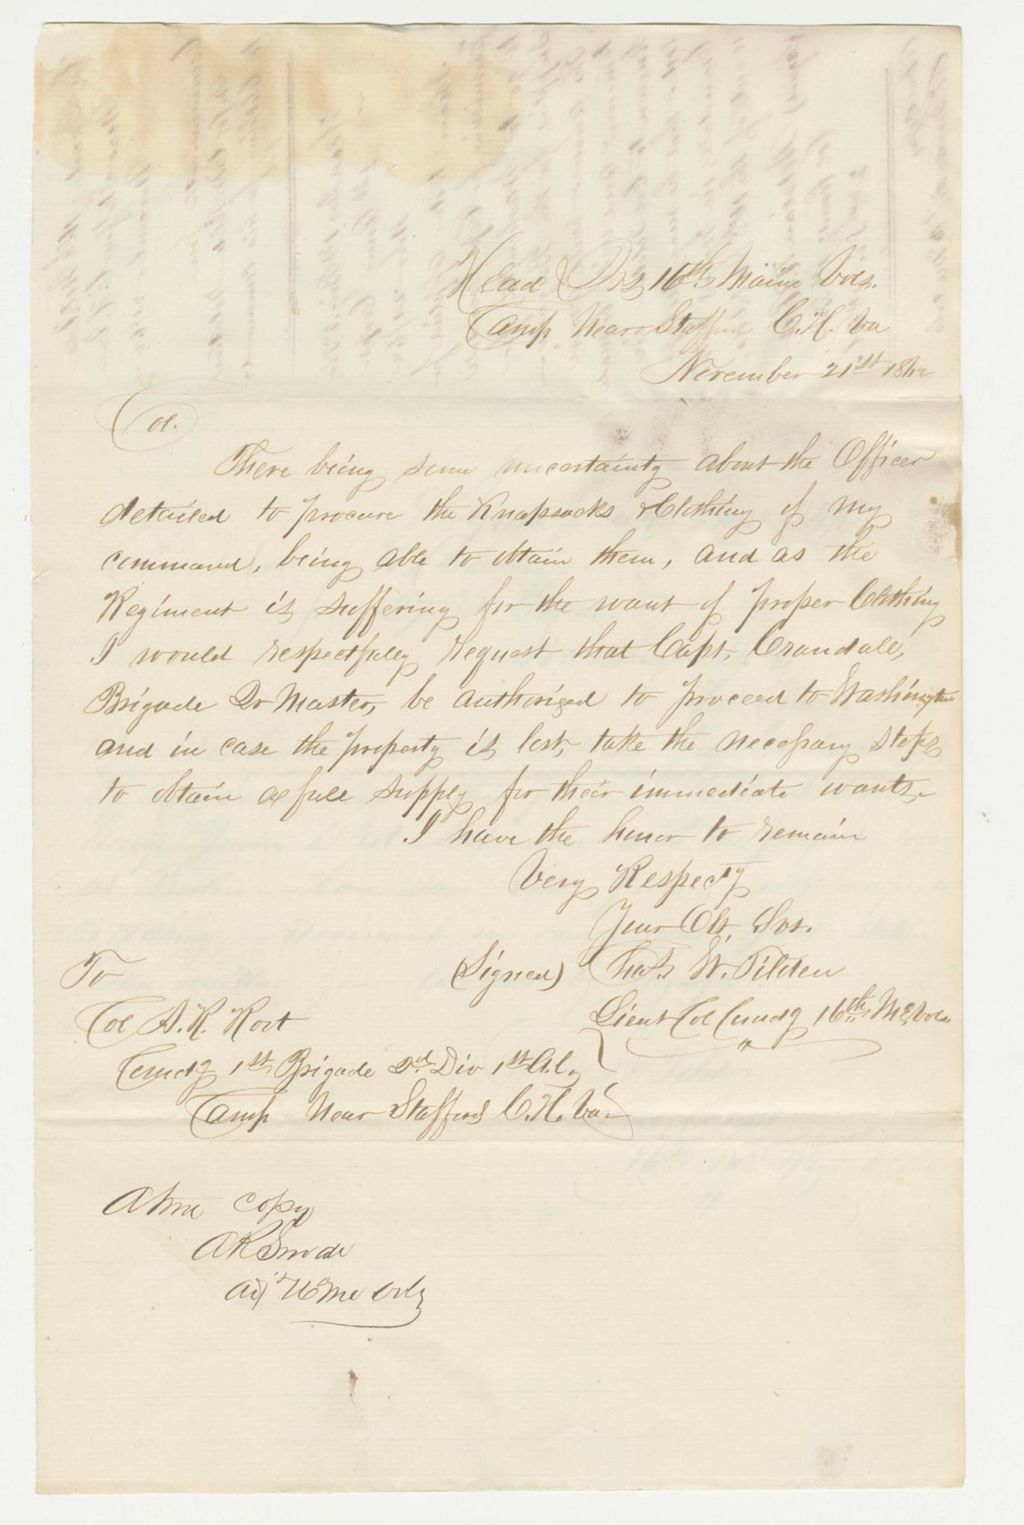 Head Qrs 16th Maine Vols.
Camp Near Stafford C.H. Va
November 21st 1862
Col.
There being some uncertainty about the Officer
detailed to procure the Knapsacks & Clothing of my
command, being able to obtain them, and as the
Regiment is suffering for the want of proper Clothing
I would respectfully request that Capt. Crandall,
Brigade Qr Master, be authorized to proceed to Washington
and in case the property is lost, take the necessary steps
to obtain a full supply for their immediate wants.
I have the honor to remain
Very Respecty
Your Obt. Svt.
(Signed) Chas. W. Tilden
Lieut Col Cmdg 16th Me. Vols
To
Col A. R. Root
Comdg 1st Brigade 2d Div 1st A.C.
Camp Near Stafford C.H. Va.
A true copy
A R Small
Adjt 16 Me Vols